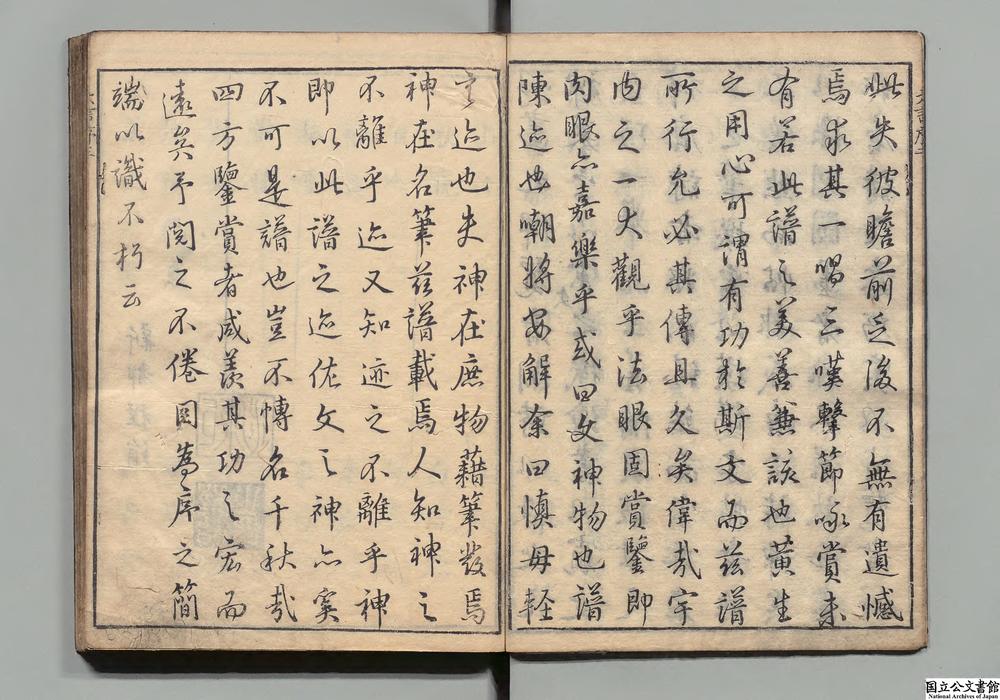 此失彼瞻前乏後不無有遺憾
焉求其一唱三嘆擊節咏賞未
有若此譜之美善兼該也黃生
之用心可謂有功於斯文而茲譜
所行允必其傳且久矣偉哉宇
内之一大觀乎法眼固賞鑒即
肉眼亦嘉樂乎或曰文神物也譜
陳迹也嘲將安解余曰慎毋輕
言迹也夫神在庶物藉筆發焉
神在名筆茲譜載焉人知神之
不離乎迹又知迹之不離乎神
即以此譜之迹作文之神亦奚
不可是譜也豈不博名千秋哉
四方鑒賞者咸羨其功之宏而
遠矣予閱之不倦因為序之簡
端以識不朽云
国立公文書館
National Archives of Japan